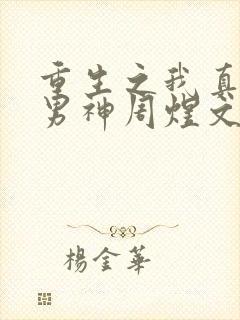 重生之我真
男神周煌文
楊金華